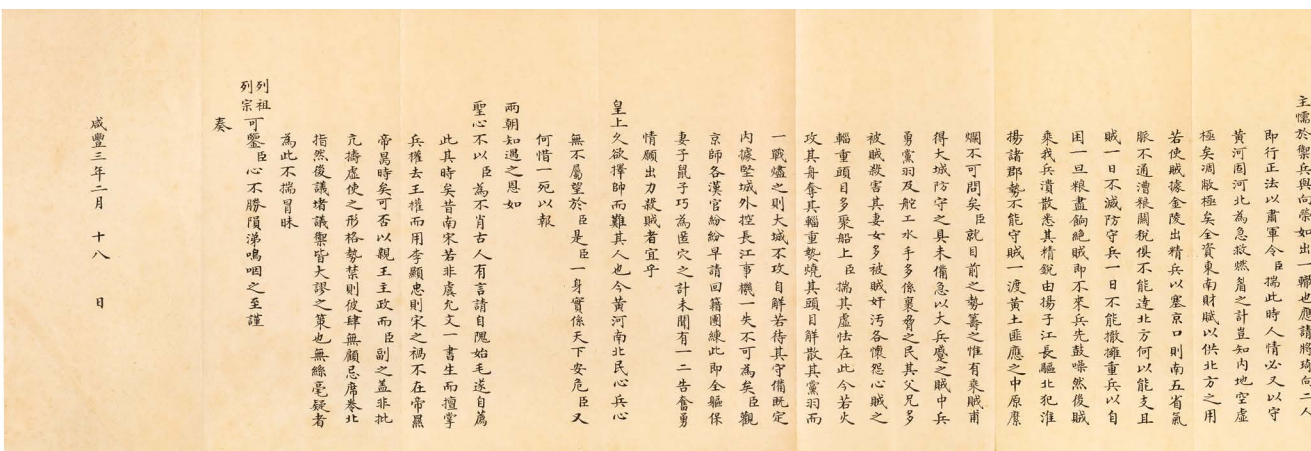 主懦於禦兵與向榮如出一轍也應請將琦向二人
即行正法以肅軍令臣揣此時人情必又以守
黃河固河北為急救燃眉之計豈知内地空虛
極矣凋敝極矣全資東南財賦以供北方之用
若使賊據金陵出精兵以塞京口則南五省氣
脈不通漕粮關稅俱不能達北方何以能支且
賊一日不滅防守兵一日不能撤擁重兵以自
困一旦粮盡餉絕賊即不來兵先鼓噪然後賊
乘我兵潰散悉其精銳由揚子江長驅北犯淮
揚諸郡勢不能守賊一渡黃土匪應之中原糜
爛不可問矣臣就目前之勢籌之惟有乘賊甫
得大城防守之具未備急以大兵蹙之賊中兵
勇黨羽及舵工水手多係裹脅之民其父兄多
被賊殺害其妻女多被賊奸污各懷怨心賊之
輜重頭目多聚船上臣揣其虛怯在此今若火
攻其舟奪其輜重勢燒其頭目解散其黨羽而
一戰燼之則大城不攻自解若待其守備既定
内據堅城外控長江事機一失不可為矣臣觀
京師各漢官紛紛早請回籍團練此即全軀保
妻子鼠子巧為匿穴之計未聞有一二告奮勇
情願出力殺賊者宜乎
皇上久欲擇帥而難其人也今黃河南北民心兵心
無不屬望於臣是臣一身實係天下安危臣又
何惜一死以報
兩朝知遇之恩如
聖心不以臣為不肖古人有言請自隗始毛遂自薦
此其時矣昔南宋若非虞允文一書生而擅掌
兵權去王權而用李顯忠則宋之禍不在帝㬎
帝昺時矣可否以親王主政而臣副之盖非批
亢擣虛使之形格勢禁則彼肆無顧忌席卷北
指然後議堵議禦皆大謬之策也無絲毫疑者
為此不揣冒昧
列祖
列宗可鑒臣心不勝隕涕嗚咽之至謹
奏
咸豐三年二月 十八 日